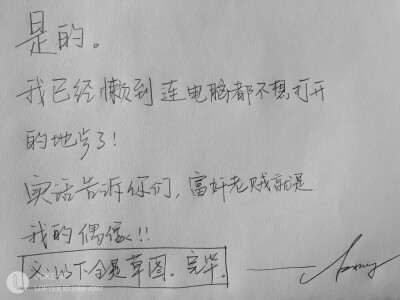 是的。
我已经懒到连电脑都不想打开
的地步了!
实话告诉你们,富奸老贼就是
我的偶像!!
文:以下全是草图。完毕。